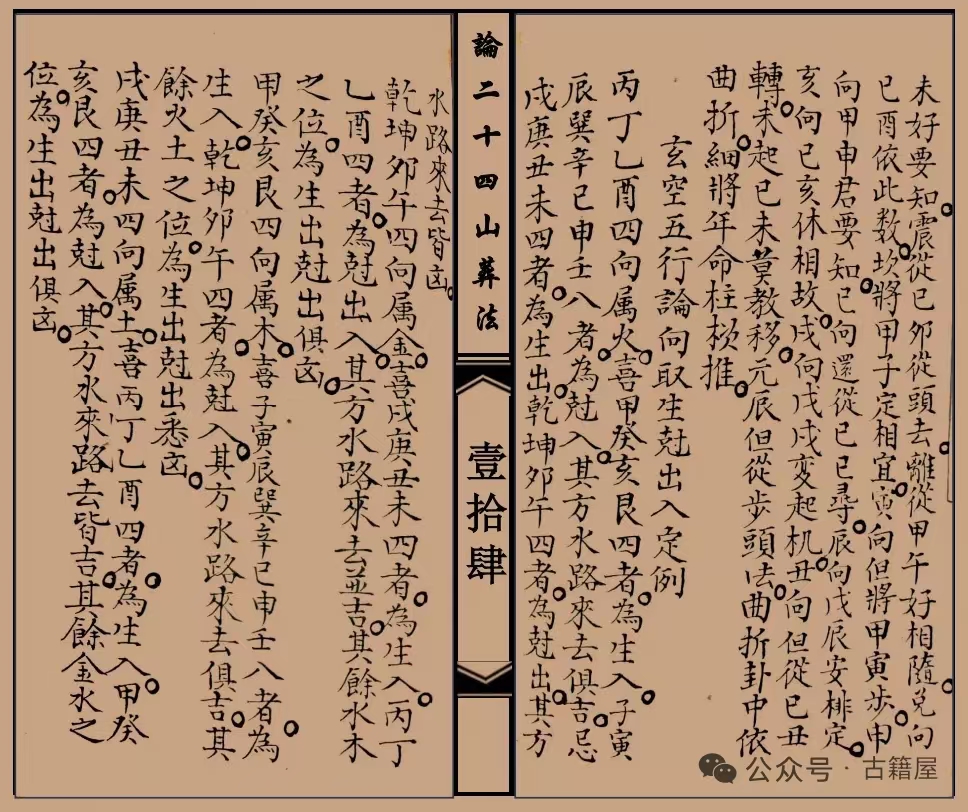 未好要知震從巳夘從頭去離從甲午好相隨兌向
巳酉依此数坎將甲子定相宜寅向但將甲寅步申
向甲申君要知巳向還從巳巳尋辰向戊辰安排定
亥向巳亥休相故戌向戊戌变起机丑向但從巳丑
轉未起巳未莫教移元辰但從步頭法曲折卦中依
曲折細將年命柱椒推
玄空五行論向取生尅出入定例
丙丁乙酉四向属火喜甲癸亥艮四者為生入子寅
辰巽辛巳申壬八者為尅入其方水路來去俱吉忌
戌庚丑未四者為生出乾坤夘午四者為尅出其方
水路來去皆凶
乾坤夘午四向属金喜戌庚丑未四者為生入丙丁
乙酉四者為尅出入其方水路來去並吉其餘水木
之位為生出尅出俱凶
甲癸亥艮四向属木喜子寅辰巽辛巳申壬八者為
生入乾坤夘午四者為尅入其方水路來去俱吉其
餘火土之位為生出尅出悉凶
戌庚丑未四向属土喜丙丁乙酉四者為生入甲癸
亥艮四者為尅入其方水來路去皆吉其餘金水之
位為生出尅出俱凶
論二十四山葬法
壹拾肆
公众号·古籍屋